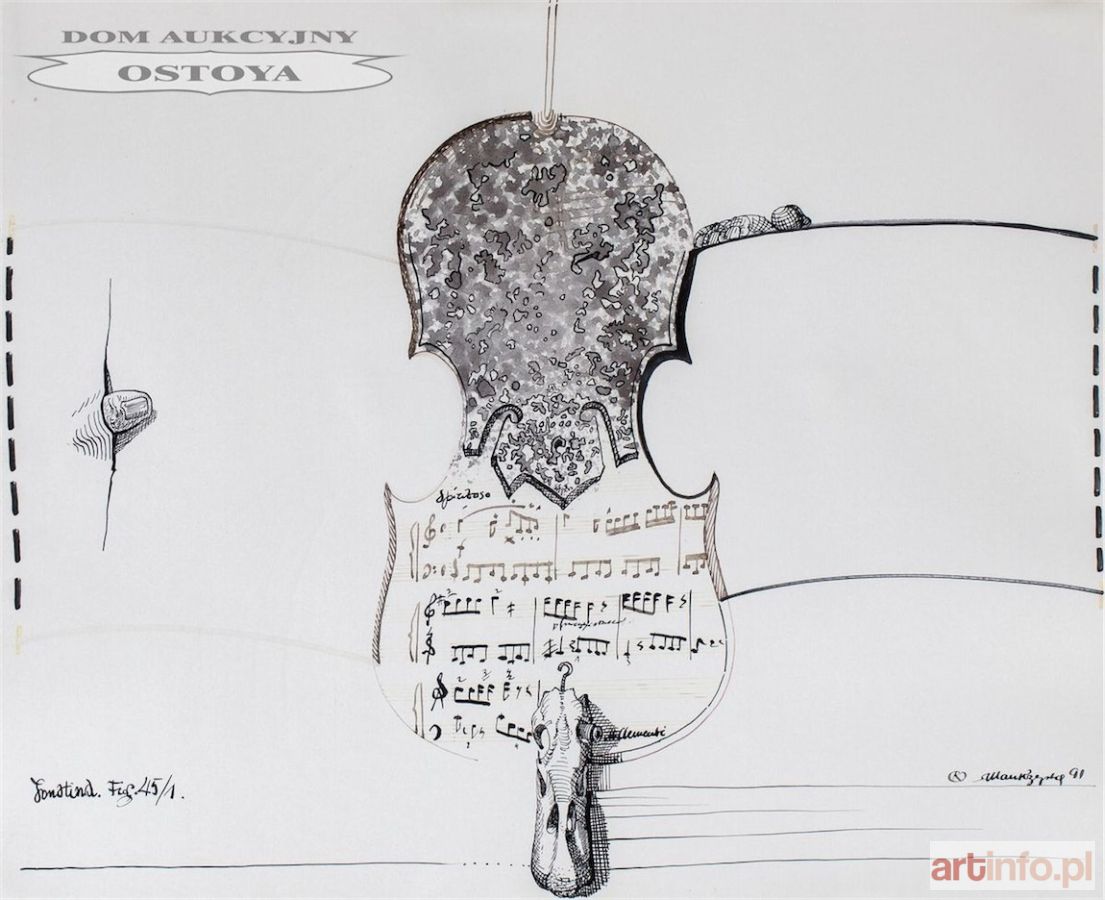 DOM AUKCYJNY
OSTOYA
Spiritoso
M Clementi
Sonatina. Fig. 45/1.
91
artinfo.pl